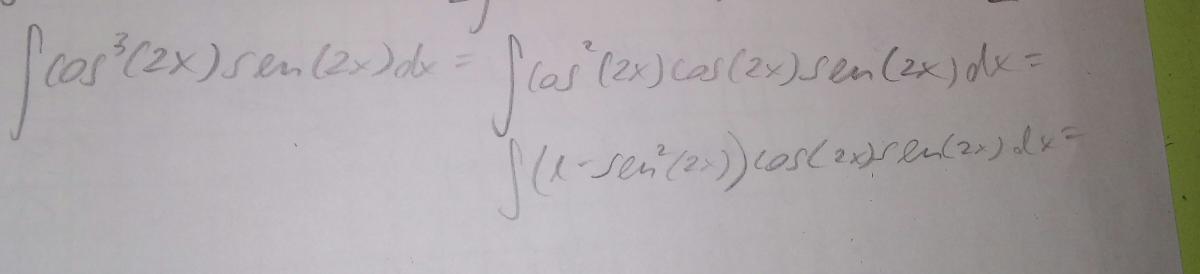 ∫cos³(2x)sen(2x)dx = ∫cos²(2x)cos(2x)sen(2x)dx =
∫(1-sen²(2x))cos(2x)sen(2x)dx =